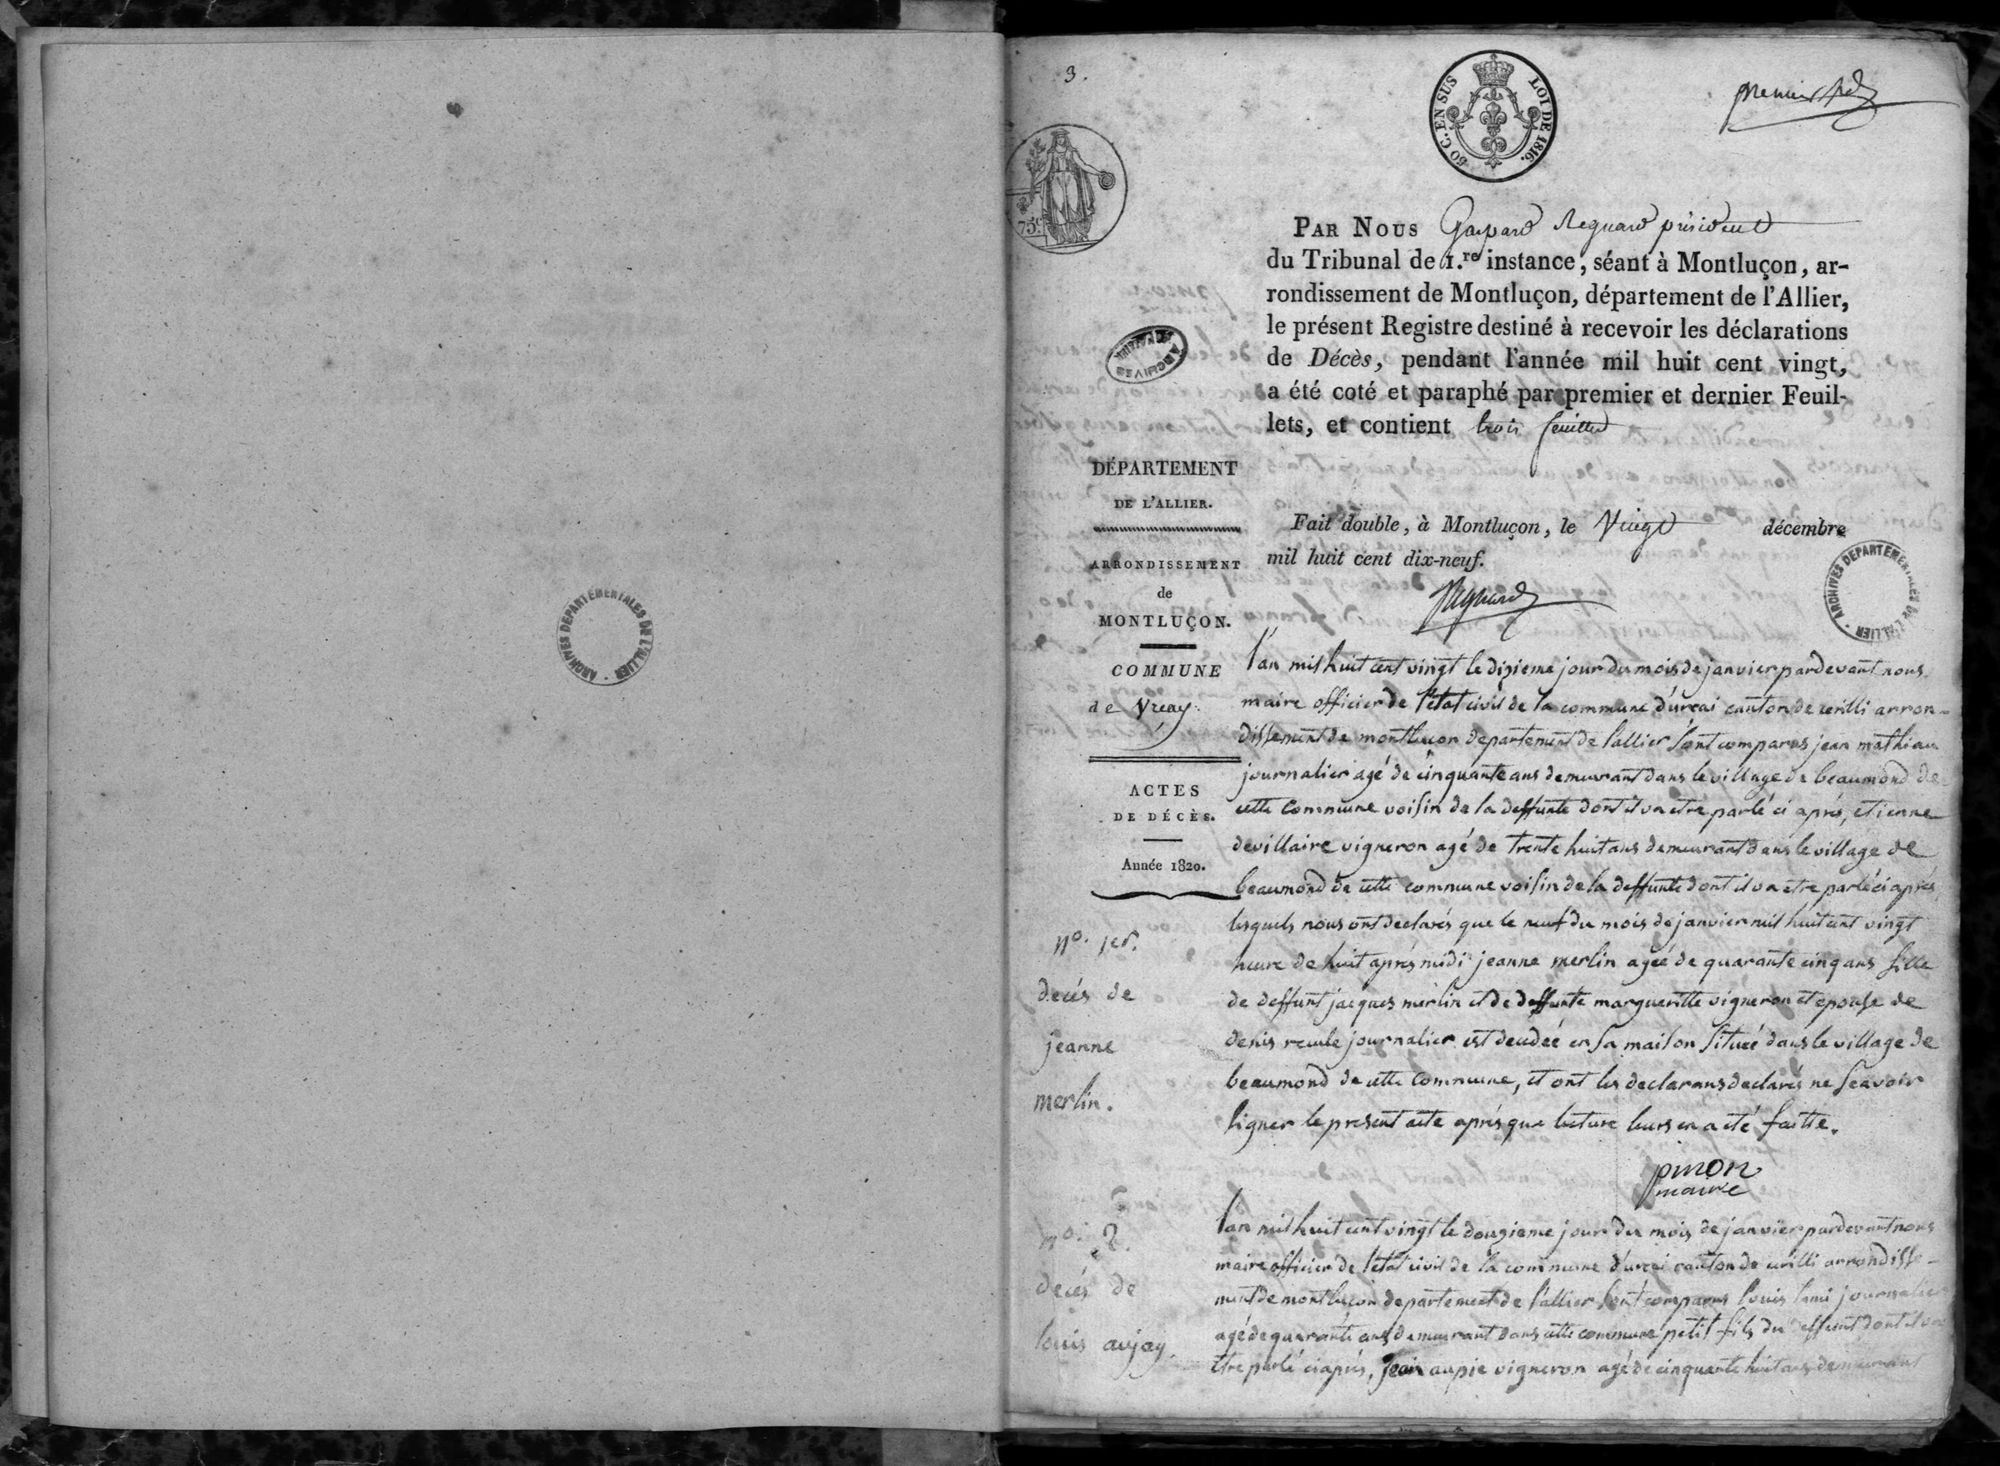 3.
50 C. EN SUS LOI DE 1816.
premier
75c
PAR NOUS Gaspard Regnard président
du Tribunal de 1.re instance, séant à Montluçon, ar-
rondissement de Montluçon, département de l'Allier,
le présent Registre destiné à recevoir les déclarations
de Décès, pendant l'année mil huit cent vingt,
a été coté et paraphé par premier et dernier Feuil-
lets, et contient trois feuilles
Fait double, à Montluçon, le Vingt décembre
mil huit cent dix-neuf.
Regnard
ARCHIVES DEPARTEMENTALES DE L'ALLIER
ARCHIVES DEPARTEMENTALES DE L'ALLIER
DÉPARTEMENT
DE L'ALLIER.
ARRONDISSEMENT
de
MONTLUÇON.
COMMUNE
de Vrcay
ACTES
DE DÉCÈS.
Année 1820.
no. 1er.
decés de
jeanne
merlin.
l'an mil huit cent vingt le dixieme jour du mois de janvier pardevant nous
maire officier de l'état civil de la commune d'urcai canton de cerilli arron-
dissement de montluçon departement de l'allier sont comparus jean mathiau
journalier agé de cinquante ans demeurant dans le village de beaumond de
cette commune voisin de la deffunte dont il va etre parlé ci aprés, etienne
devillaire vigneron agé de trente huit ans demeurant dans le village de
beaumond de cette commune voisin de la deffunte dont il va etre parlé ci aprés
lesquels nous ont declarés que le neuf du mois de janvier mil huit cent vingt
heure de huit aprés midi jeanne merlin agée de quarante cinq ans fille
de deffunt jacques merlin et de deffunte margueritte vigneron et epouse de
denis journalier est decedée en sa maison située dans le village de
beaumond de cette commune, et ont les declarans declarés ne scavoir
signer le present acte aprés que lecture leurs en a eté faitte.
pinon
maire
no. 2.
decés de
louis aujay
l'an mil huit cent vingt le douzieme jour du mois de janvier pardevant nous
maire officier de l'état civil de la commune d'urcai canton de cerilli arrondisse-
ment de montluçon departement de l'allier sont comparus louis lami journalier
agé de quarante ans demeurant dans cette commune petit fils du deffunt dont il va
etre parlé ci aprés, jean aupie vigneron agé de cinquante huit ans demeurant